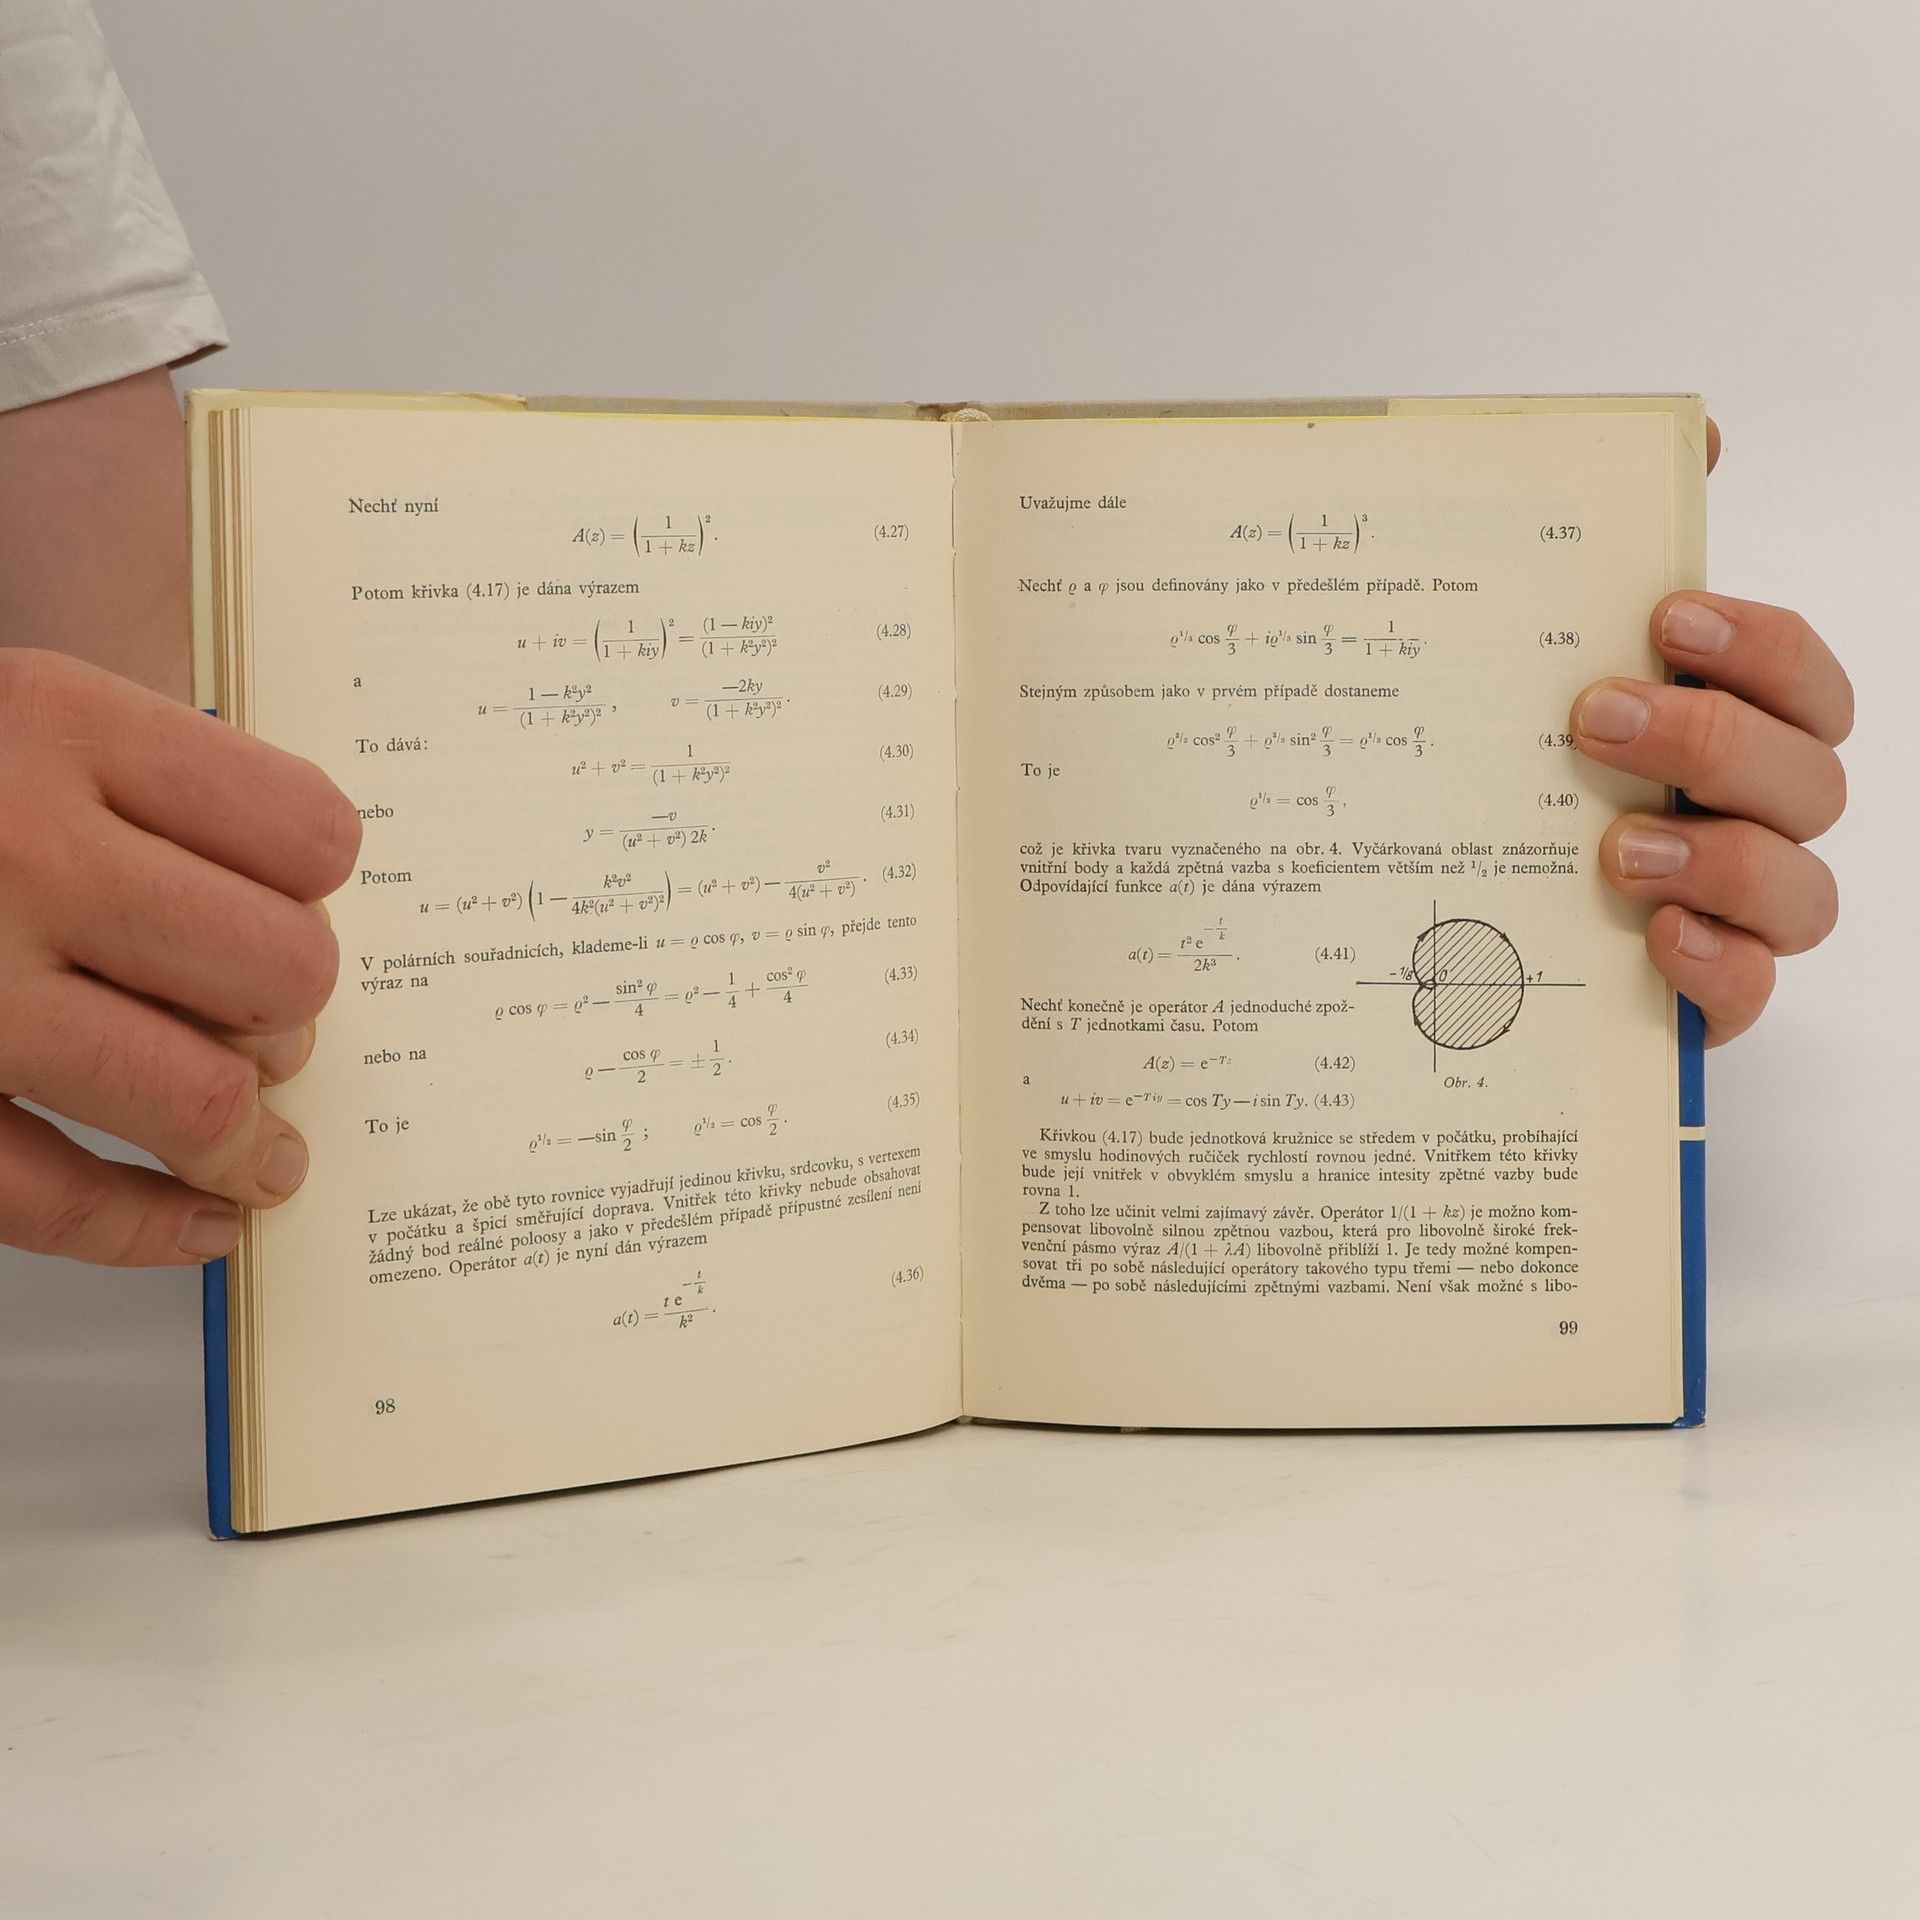 Nechť nyní
A(z) = (1 / (1 + kz))². (4.27)
Potom křivka (4.17) je dána výrazem
u + iv = (1 / (1 + kiy))² = (1 — kiy)² / (1 + k²y²)² (4.28)
a
u = (1 — k²y²) / (1 + k²y²)² , v = —2ky / (1 + k²y²)² . (4.29)
To dává:
u² + v² = 1 / (1 + k²y²)² (4.30)
nebo
y = —v / ((u² + v²) 2k) . (4.31)
Potom
u = (u² + v²) (1 — k²v² / (4k²(u² + v²)²)) = (u² + v²) — v² / (4(u² + v²)) . (4.32)
V polárních souřadnicích, klademe-li u = ϱ cos φ, v = ϱ sin φ, přejde tento
výraz na
ϱ cos φ = ϱ² — sin² φ / 4 = ϱ² — 1/4 + cos² φ / 4 (4.33)
nebo na
ϱ — cos φ / 2 = ± 1/2 . (4.34)
To je
ϱ^1/2 = —sin φ/2 ; ϱ^1/2 = cos φ/2 . (4.35)
Lze ukázat, že obě tyto rovnice vyjadřují jedinou křivku, srdcovku, s vertexem
v počátku a špicí směřující doprava. Vnitřek této křivky nebude obsahovat
žádný bod reálné poloosy a jako v předešlém případě přípustné zesílení není
omezeno. Operátor a(t) je nyní dán výrazem
a(t) = t e^(−t/k) / k² . (4.36)
98
Uvažujme dále
A(z) = (1 / (1 + kz))³ . (4.37)
Nechť ϱ a φ jsou definovány jako v předešlém případě. Potom
ϱ^1/3 cos φ/3 + iϱ^1/3 sin φ/3 = 1 / (1 + kiy) . (4.38)
Stejným způsobem jako v prvém případě dostaneme
ϱ^2/3 cos² φ/3 + ϱ^2/3 sin² φ/3 = ϱ^1/3 cos φ/3 . (4.39
To je
ϱ^1/3 = cos φ/3 , (4.40)
což je křivka tvaru vyznačeného na obr. 4. Vyčárkovaná oblast znázorňuje
vnitřní body a každá zpětná vazba s koeficientem větším než 1/2 je nemožná.
Odpovídající funkce a(t) je dána výrazem
a(t) = t² e^(−t/k) / 2k³ . (4.41)
-1/8 0 +1
Nechť konečně je operátor A jednoduché zpož-
dění s T jednotkami času. Potom
A(z) = e^(−Tz) (4.42)
Obr. 4.
a
u + iv = e^(−Tiy) = cos Ty — i sin Ty. (4.43)
Křivkou (4.17) bude jednotková kružnice se středem v počátku, probíhající
ve smyslu hodinových ručiček rychlostí rovnou jedné. Vnitřkem této křivky
bude její vnitřek v obvyklém smyslu a hranice intesity zpětné vazby bude
rovna 1.
Z toho lze učinit velmi zajímavý závěr. Operátor 1/(1 + kz) je možno kom-
pensovat libovolně silnou zpětnou vazbou, která pro libovolně široké frek-
venční pásmo výraz A/(1 + λA) libovolně přiblíží 1. Je tedy možné kompen-
sovat tři po sobě následující operátory takového typu třemi — nebo dokonce
dvěma — po sobě následujícími zpětnými vazbami. Není však možné s libo-
99